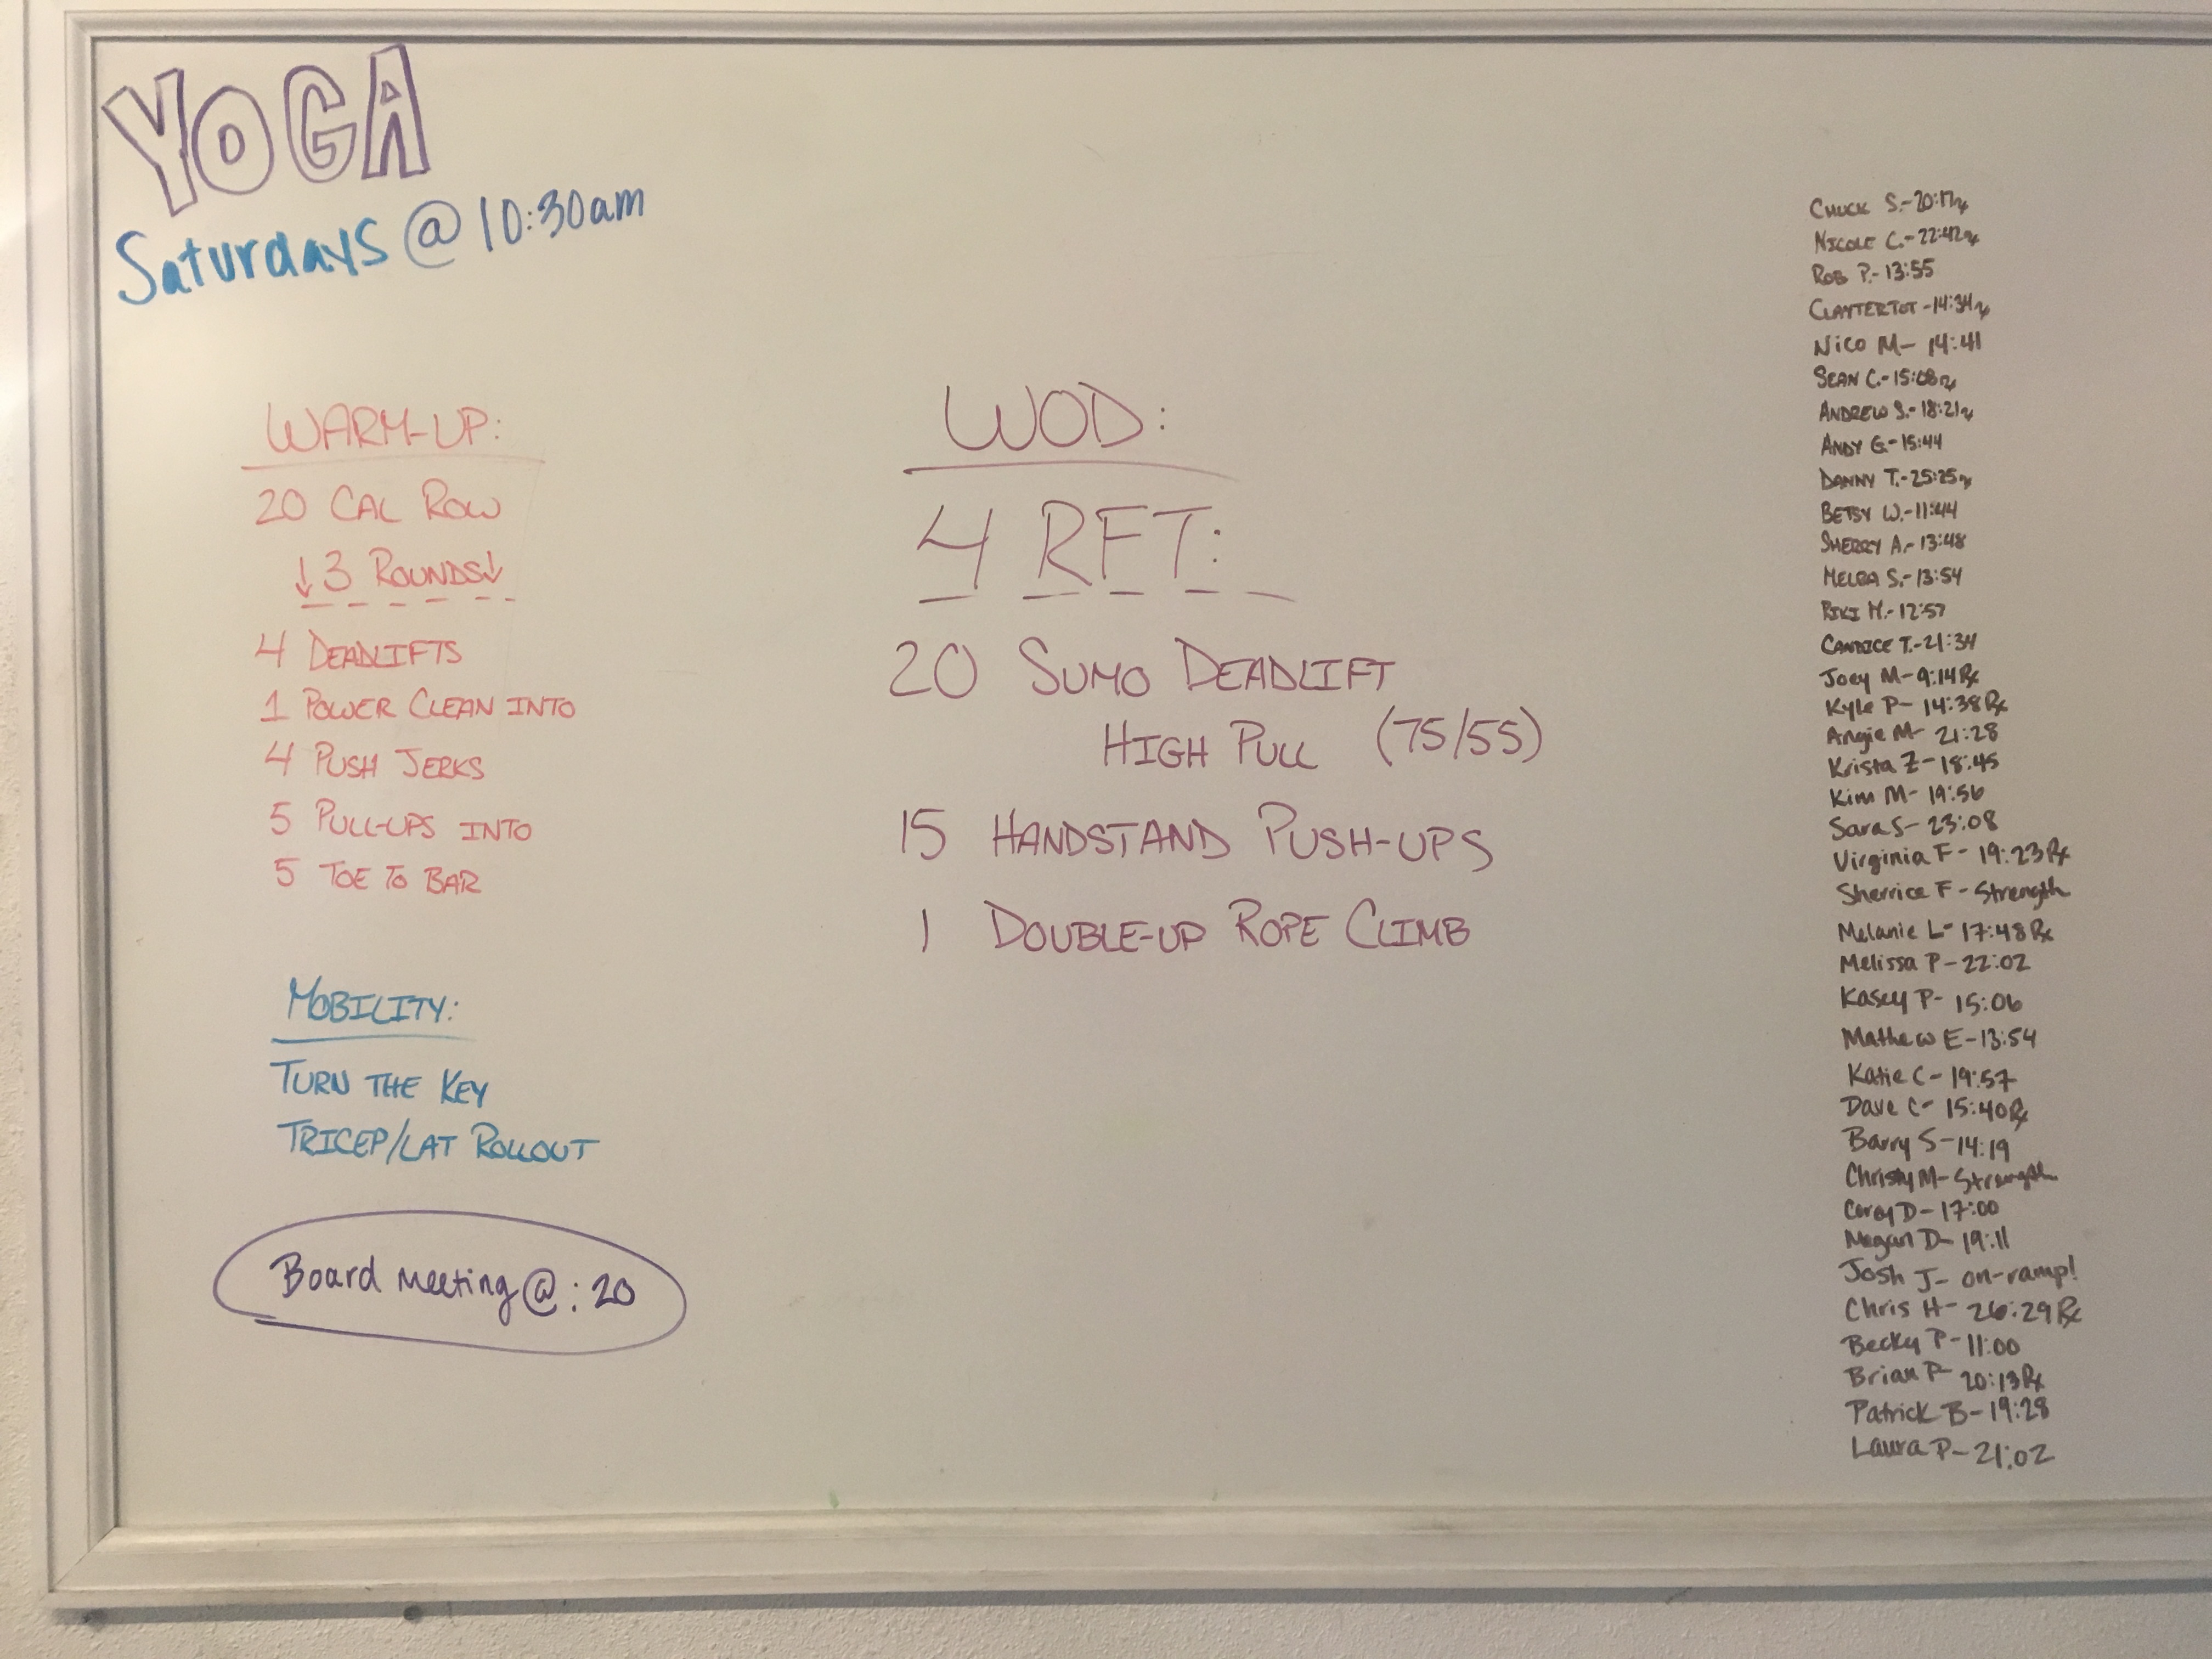 YOGA
Saturdays @ 10:30am
WARM-UP:
20 CAL ROW
↓3 ROUNDS↓
4 DEADLIFTS
1 POWER CLEAN INTO
4 PUSH JERKS
5 PULL-UPS INTO
5 TOE TO BAR
MOBILITY:
TURN THE KEY
TRICEP/LAT ROLLOUT
Board Meeting @ :20
WOD:
4 RFT:
20 SUMO DEADLIFT
HIGH PULL (75/55)
15 HANDSTAND PUSH-UPS
1 DOUBLE-UP ROPE CLIMB
CHUCK S.- 20:17 Rx
NICOLE C.- 22:42 Rx
ROB P.- 13:55
CLAYTERTOT - 14:34 Rx
NICO M- 14:41
SEAN C.- 15:08 Rx
ANDREW S.- 18:21 Rx
ANDY G.- 15:44
DANNY T.- 25:25 Rx
BETSY W.- 11:44
SHERRY A.- 13:48
MELBA S.- 13:54
RIKI M.- 12:57
CANDICE T.- 21:34
Joey M- 9:14 Rx
Kyle P- 14:38 Rx
Angie M- 21:28
Krista Z- 18:45
Kim M- 19:56
Sara S- 23:08
Virginia F- 19:23 Rx
Sherrice F- Strength
Melanie L- 17:48 Rx
Melissa P- 22:02
Kasey P- 15:06
Mathew E- 13:54
Katie C- 19:57
Dave C- 15:40 Rx
Barry S- 14:19
Christy M- Strength
Corey D- 17:00
Megan D- 19:11
Josh J- on-ramp!
Chris H- 26:29 Rx
Becky P- 11:00
Brian F 20:13 Rx
Patrick B- 19:28
Laura P- 21:02